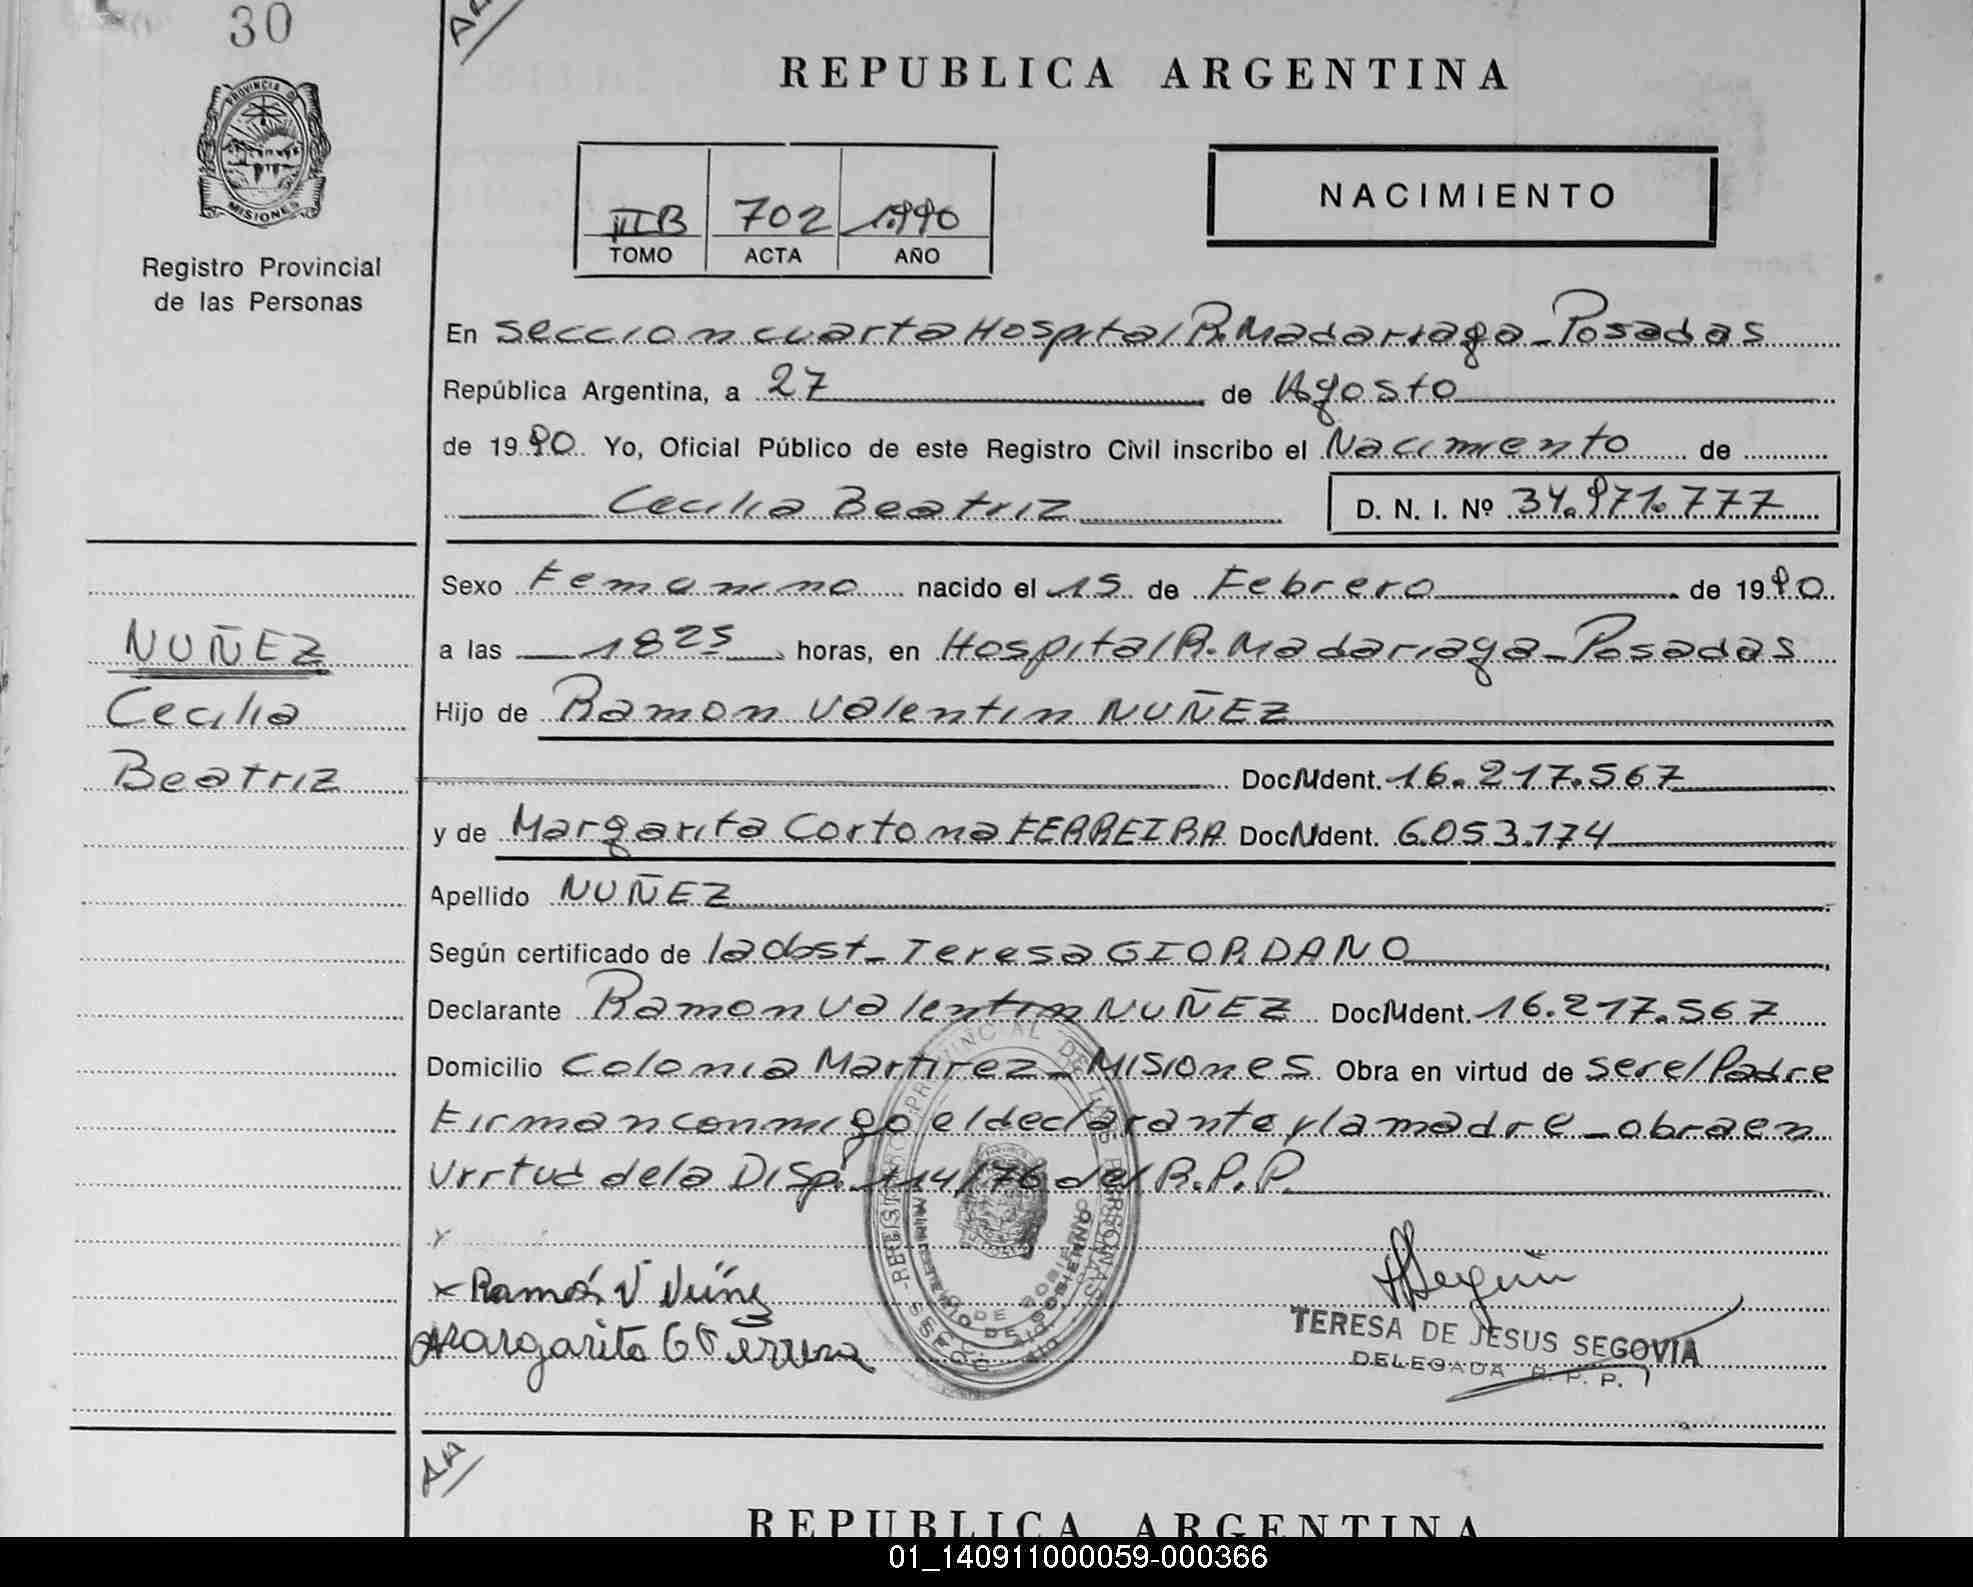 30
REPUBLICA ARGENTINA
PROVINCIA D
MISIONES
Registro Provincial
de las Personas
III B 702 1990
TOMO ACTA AÑO
NACIMIENTO
En Seccion cuarta Hospital R. Madariaga - Posadas
República Argentina, a 27 de Agosto
de 1990. Yo, Oficial Público de este Registro Civil inscribo el Nacimiento de
Cecilia Beatriz D. N. I. Nº 34.971.777
Sexo Femenino nacido el 15 de Febrero de 1990.
NUÑEZ
a las 18 25 horas, en Hospital R. Madariaga - Posadas
Cecilia
Hijo de Ramon Valentin NUÑEZ
Beatriz
Doc. Ident. 16.217.567
y de Margarita FERREIRA Doc. Ident. 6.053.174
Apellido NUÑEZ
Según certificado de la Obst - Teresa GIORDANO
Declarante Ramon Valentin NUÑEZ Doc. Ident. 16.217.567
Domicilio Colonia Martirez - Misiones Obra en virtud de ser el Padre
Firman conmigo el declarante y la madre - obra en
Virtud de la Disp. 114/76 del R.P.P.
x Ramón V Núñez
Margarita C Ferreira
TERESA DE JESUS SEGOVIA
DELEGADA R. P. P.
REPUBLICA ARGENTINA
01_140911000059-000366